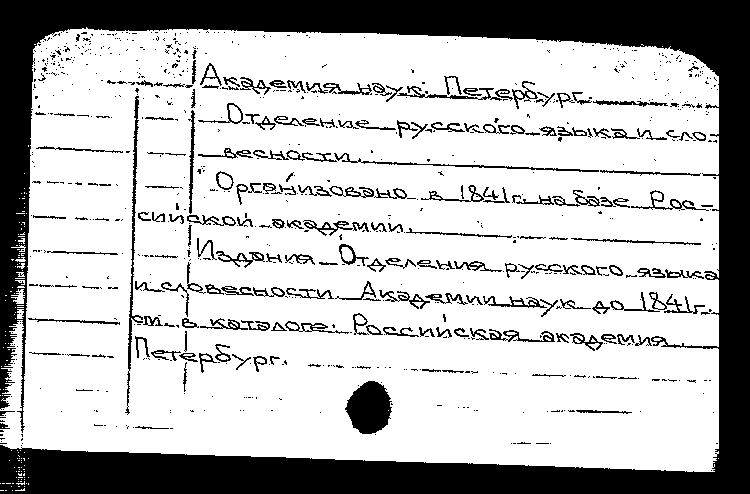 Академия наук. Петербург.
Отделение русского языка и сло-
весности.
Организовано в 1841г. на базе Рос-
сийской академии.
Издания Отделения русского языка
и словесности Академии наук до 1841г.
см. в каталоге: Российская академия.
Петербург.